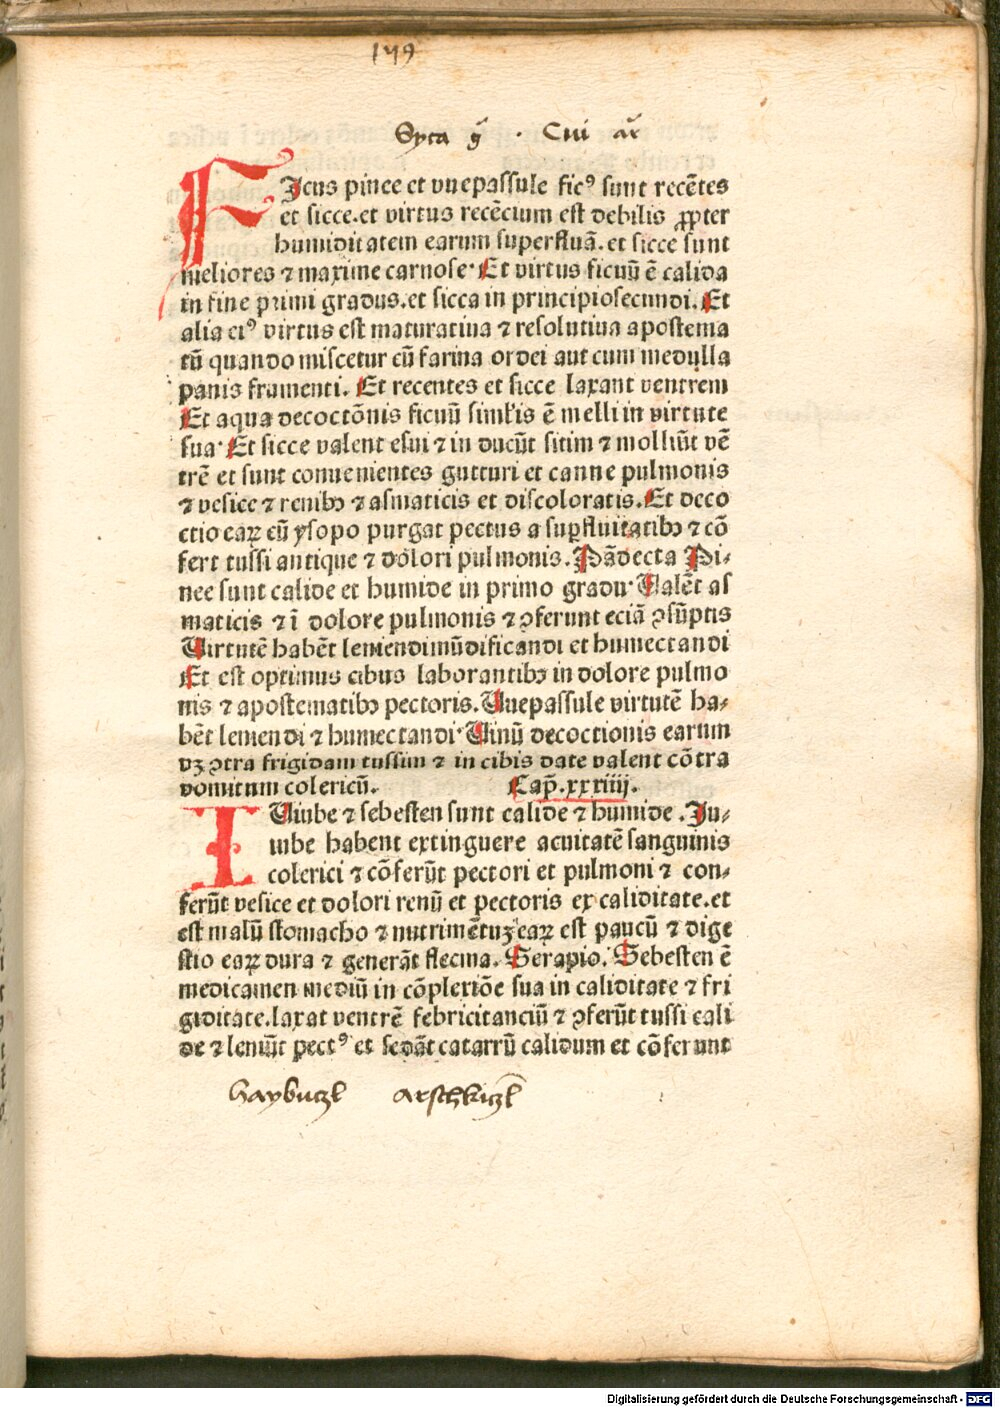 179
Syca g̃ · Cui ar̃
FIcus pinee et vuepassule ficꝰ sunt recẽtes
et sicce.et virtus recẽcium est debilis ꝓpter
humiditatem earum superfluã.et sicce sunt
meliores ⁊ maxime carnose· Et virtus ficuũ ẽ calida
in fine primi gradus.et sicca in principiosecundi. Et
alia eiꝰ virtus est maturatiua ⁊ resolutiua apostema
tũ quando miscetur cũ farina ordei aut cum medulla
panis frumenti. Et recentes et sicce laxant ventrem
Et aqua decoctõnis ficuũ simłis ẽ melli in virtute
sua· Et sicce valent esui ⁊ in ducũt sitim ⁊ molliũt vẽ
trẽ et sunt conuenientes gutturi et canne pulmonis
⁊ vesice ⁊ renibꝫ ⁊ asmaticis et discoloratis. Et deco
ctio eaꝝ cũ ysopo purgat pectus a suꝑfluitatibꝫ ⁊ cõ
fert tussi antique ⁊ dolori pulmonis. Pãdecta Pi⸗
nee sunt calide et humide in primo gradu· Ualẽt as
maticis ⁊ ĩ dolore pulmonis ⁊ ꝯferunt eciã ꝯsũptis
Uirtutẽ habẽt leniendimũdificandi et humectandi
Et est optimus cibus laborantibꝫ in dolore pulmo
nis ⁊ apostematibꝫ pectoris. Uuepassule virtutẽ ha⸗
bẽt leniendi ⁊ humectandi· Uinũ decoctionis earum
vꝫ ꝯtra frigidam tussim ⁊ in cibis date valent cõtra
vomitum colericũ. Cap̃. xxxiiij.
IUiube ⁊ sebesten sunt calide ⁊ humide . Iu⸗
iube habent extinguere acuitatẽ sanguinis
colerici ⁊ cõferũt pectori et pulmoni ⁊ con⸗
ferũt vesice et dolori renũ et pectoris ex caliditate.et
est malũ stomacho ⁊ nutrimẽtuꝫ eaꝝ est paucũ ⁊ dige
stio eaꝝ dura ⁊ generãt flecma. Serapio. Sebesten ẽ
medicamen mediũ in cõplexiõe sua in caliditate ⁊ fri
giditate.laxat ventrẽ febricitanciũ ⁊ ꝯferũt tussi cali
de ⁊ leniũt pectꝰ et sedãt catarrũ calidum et cõferunt
haybutzl arschkiczl̃
Digitalisierung gefördert durch die Deutsche Forschungsgemeinschaft - DFG